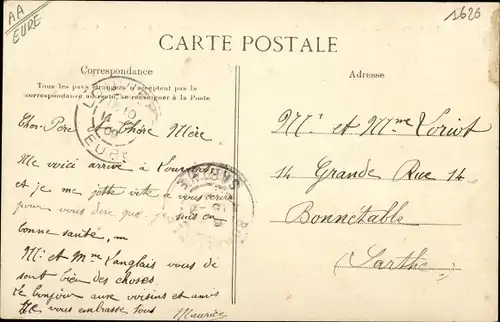 AA
EURE
1626
CARTE POSTALE
Correspondance
Tous les pays étrangers n'acceptent pas la
correspondance au recto, se renseigner à la Poste
Adresse
Cher Père et Chère Mère
Me voici arrivé à Louviers
et je me jette vite à vous écrire
pour vous dire que je suis en
bonne santé,
Mr et Mme Langlais vous
sont bien des choses
le bonjour aux voisins et amis
Je vous embrasse tous Maurice
Mr et Mme Loriot
14 Grande Rue 14
Bonnétable
Sarthe
EURE
SARTHE